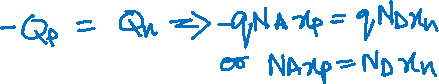 -Qp = Qn => -qNAxp = qNDxn
or NAxp = NDxn